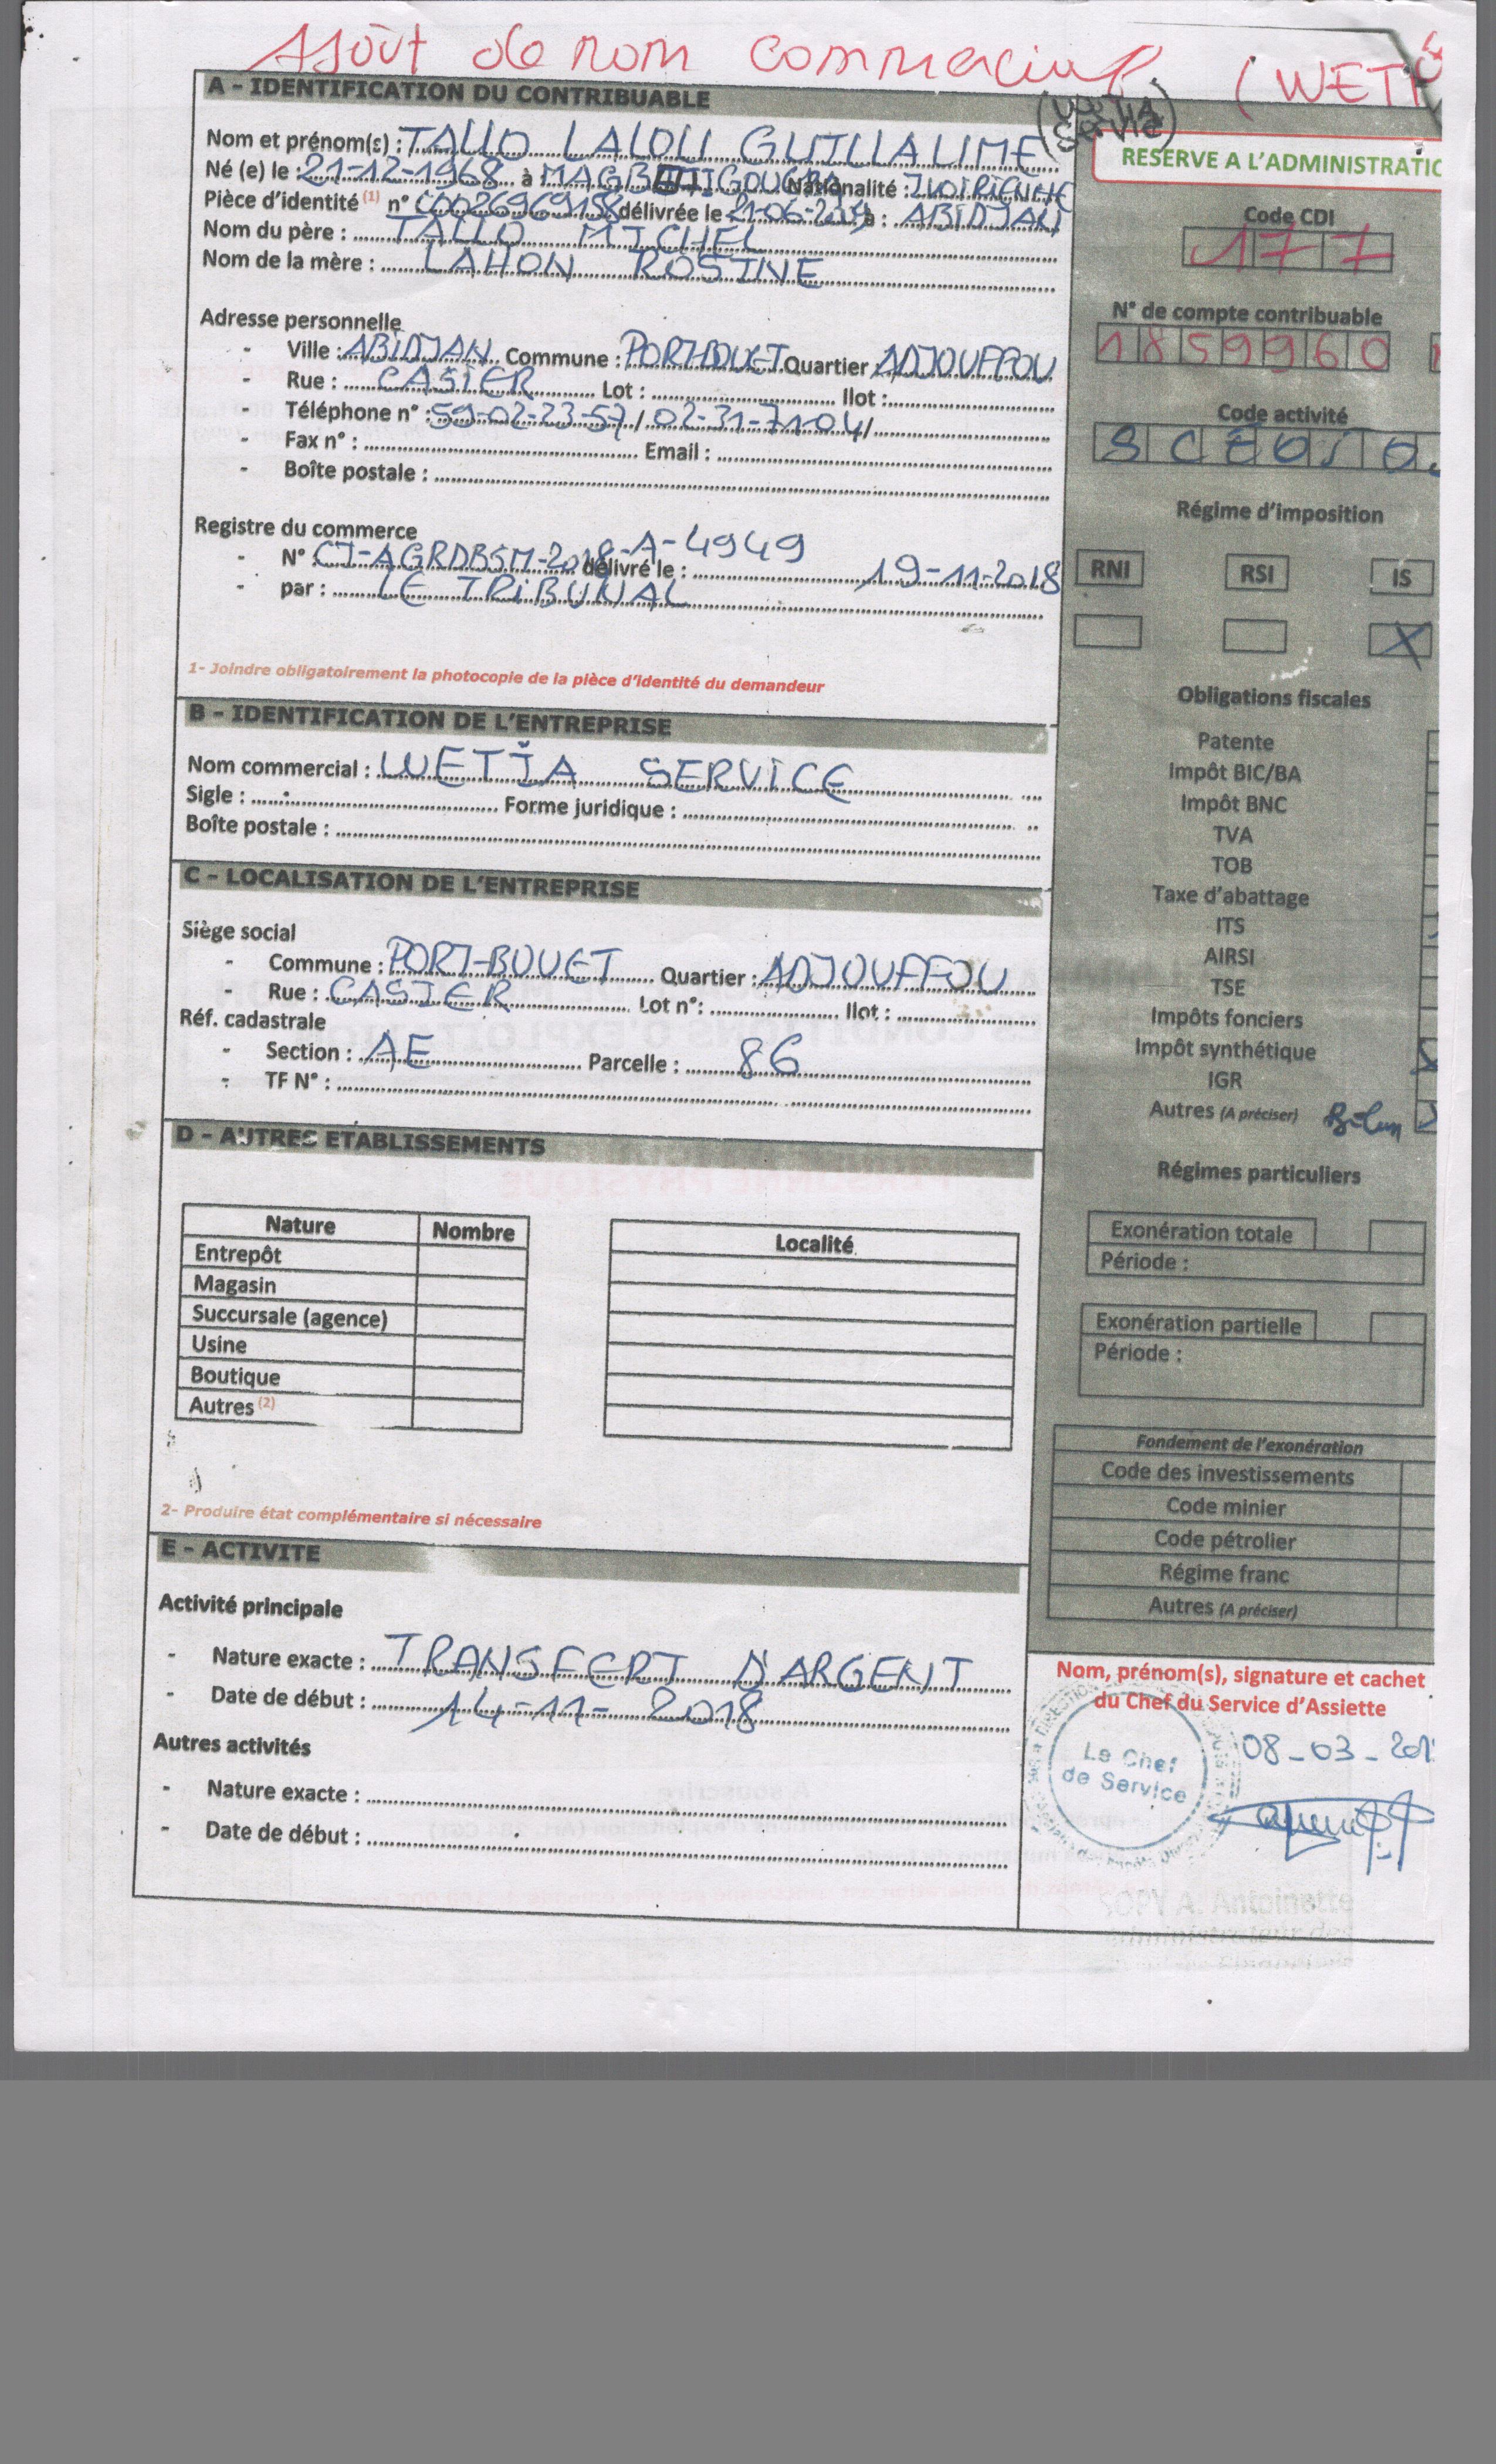 Ajout de nom commercial (WETI
A - IDENTIFICATION DU CONTRIBUABLE
Nom et prénom(s) : TALLO LALOU GUILLAUME
Né (e) le : 21-12-1968 à Nationalité : IVOIRIENNE
Pièce d'identité (1) n° C0026969158 délivrée le 21-06- à : ABIDJAN
Nom du père : TALLO MICHEL
Nom de la mère : LAHON ROSINE
Adresse personnelle
- Ville : ABIDJAN Commune : PORT-BOUET Quartier ADJOUFFOU
- Rue : CASIER Lot : Ilot :
- Téléphone n° : 59-02-23-57 / 02-31-71-04 /
- Fax n° : Email :
- Boîte postale :
Registre du commerce
- N° : CI-AGRDBSM-2018-A-4949 délivré le : 19-11-2018
- par : LE TRIBUNAL
1- Joindre obligatoirement la photocopie de la pièce d'identité du demandeur
B - IDENTIFICATION DE L'ENTREPRISE
Nom commercial : WETIA SERVICE
Sigle : Forme juridique :
Boîte postale :
C - LOCALISATION DE L'ENTREPRISE
Siège social
- Commune : PORT-BOUET Quartier : ADJOUFFOU
- Rue : CASIER Lot n° : Ilot :
Réf. cadastrale
- Section : AE Parcelle : 86
- TF N° :
D - AUTRES ETABLISSEMENTS
Nature Nombre Localité
Entrepôt
Magasin
Succursale (agence)
Usine
Boutique
Autres (2)
2- Produire état complémentaire si nécessaire
E - ACTIVITE
Activité principale
- Nature exacte : TRANSFERT D'ARGENT
- Date de début : 14-11-2018
Autres activités
- Nature exacte :
- Date de début :
RESERVE A L'ADMINISTRATIO
Code CDI
177
N° de compte contribuable
1859960
Code activité
Régime d'imposition
RNI RSI IS
X
Obligations fiscales
Patente
Impôt BIC/BA
Impôt BNC
TVA
TOB
Taxe d'abattage
ITS
AIRSI
TSE
Impôts fonciers
Impôt synthétique
IGR
Autres (A préciser)
Régimes particuliers
Exonération totale
Période :
Exonération partielle
Période :
Fondement de l'exonération
Code des investissements
Code minier
Code pétrolier
Régime franc
Autres (A préciser)
Nom, prénom(s), signature et cachet
du Chef du Service d'Assiette
08-03-201
Le Chef
de Service
A. Antoinette